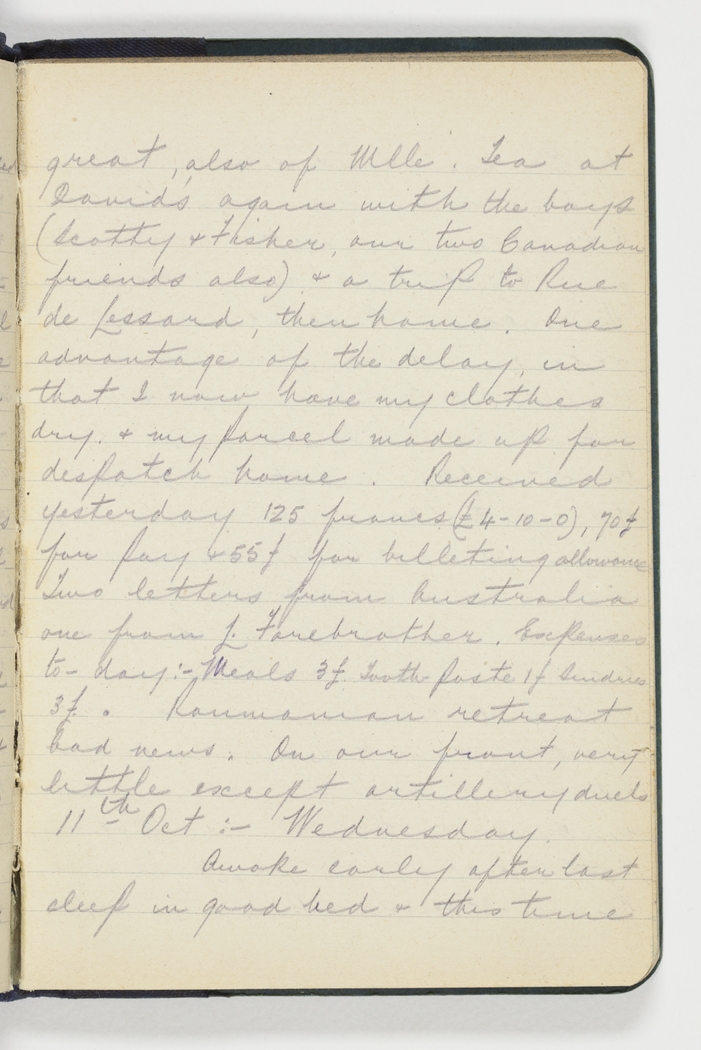 great, also of Mlle. Tea at
Davids again with the boys
(Scotty & Fisher, our two Canadian
friends also) & a trip to Rue
de Lessard, then home. One
advantage of the delay, in
that I now have my clothes
dry. & my parcel made up for
despatch home. Received
yesterday 125 francs (£4-10-0), 70f
for pay & 55f for billeting allowance
Two letters from Australia
one from L. Farebrother. Expenses
to-day:- Meals 3f. Tooth paste 1f Sundries
3f. Roumanian retreat
bad news. On our front, very
little except artillery duels
11th Oct :- Wednesday.
Awoke early after last
sleep in good bed & this time